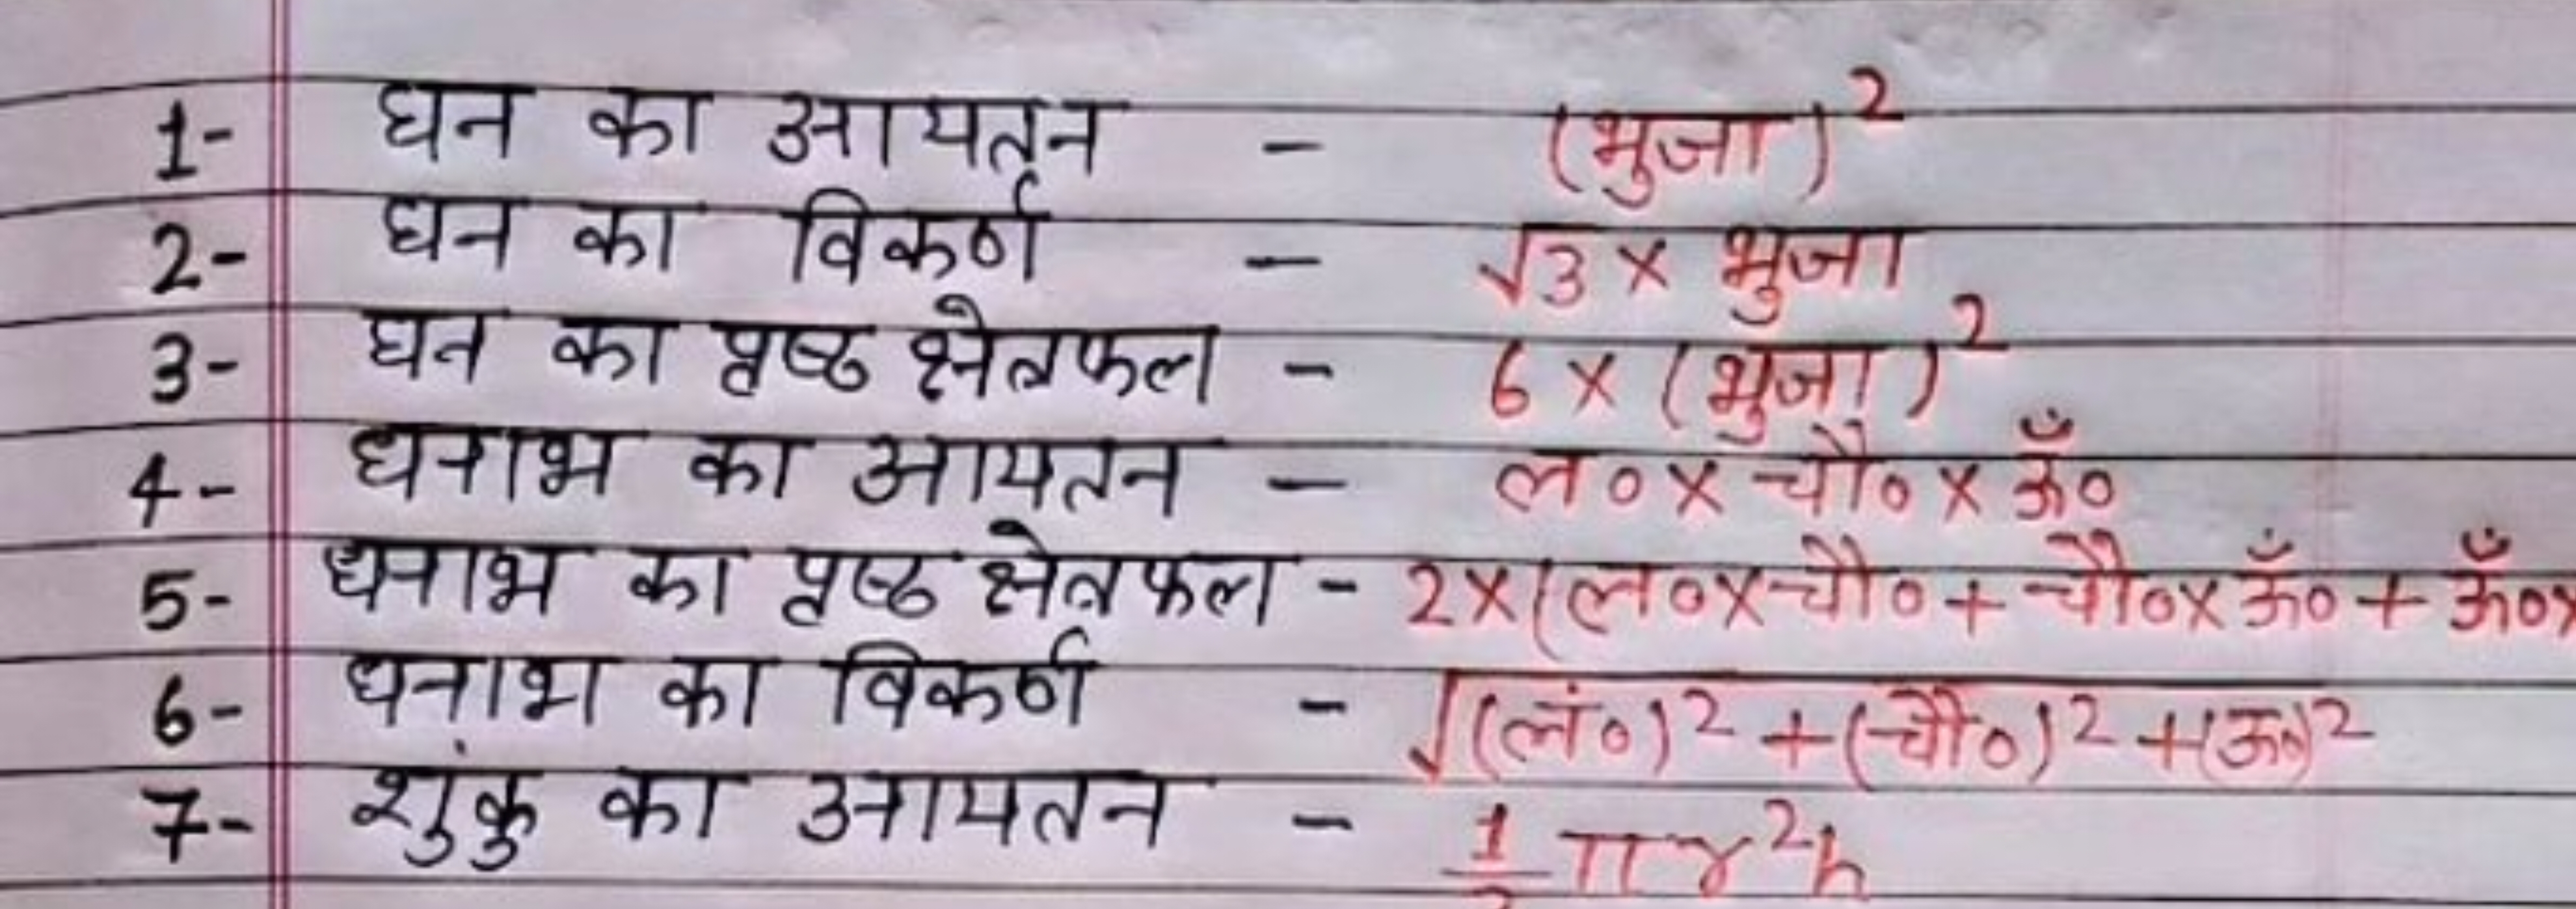 1- घन का आयतन - (भुजा)²
2- घन का विकर्ण - √3 × भुजा
3- घन का पृष्ठ क्षेत्रफल - 6 × (भुजा)²
4- घनाभ का आयतन - ल० × चौ० × ऊँ०
5- घनाभ का पृष्ठ क्षेत्रफल - 2×(ल०×चौ० + चौ०× ऊँ० + ऊँ०×
6- घनाभ का विकर्ण - √(लं०)² + (चौ०)² + (ऊ०)²
7- शुंकु का आयतन - 1/ πr²h